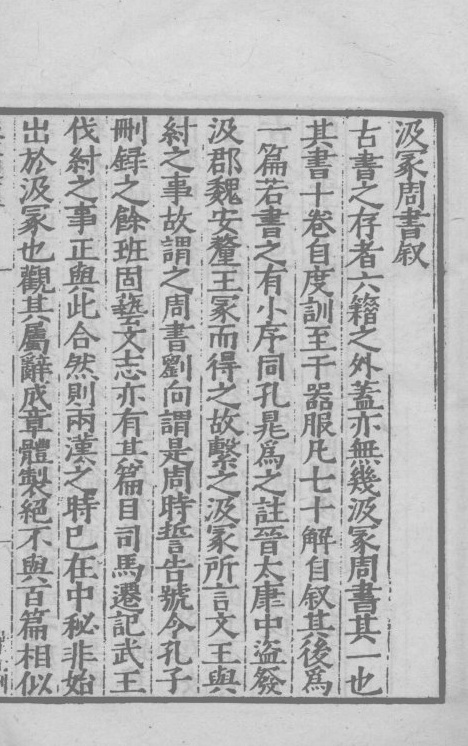 汲冢周書叙
古書之存者六籍之外蓋亦無幾汲冢周書其一也
其書十卷自度訓至于器服凡七十解自叙其後為
一篇若書之有小序同孔晁為之註晉太康中盜發
汲郡魏安釐王冢而得之故繫之汲冢所言文王與
紂之事故謂之周書劉向謂是周時誓告號令孔子
刪録之餘班固藝文志亦有其篇目司馬遷記武王
伐紂之事正與此合然則兩漢之時已在中秘非始
出於汲冢也觀其屬辭成章體製絕不與百篇相似